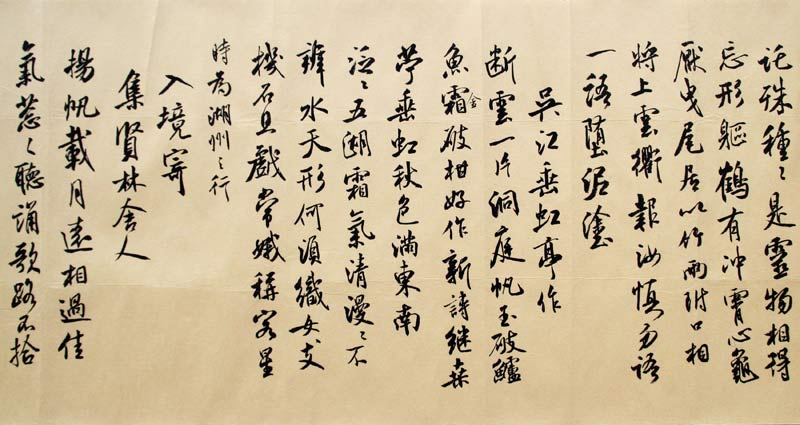 讬殊種々是靈物相得
忘形軀鶴有沖霄心龜
厭曳尾居以竹兩附口相
將上雲衢報汝慎勿語
一語墮泥塗
吳江垂虹亭作
断雲一片洞庭帆玉破鱸
魚霜金破柑好作新詩继桑
苧垂虹秋色满東南
泛々五湖霜氣清漫々不
辨水天形何須織女支
機石且戲常娥稱客星
時為湖州之行
入境寄
集賢林舍人
揚帆載月遠相過佳
氣葱々聽誦歌路不拾